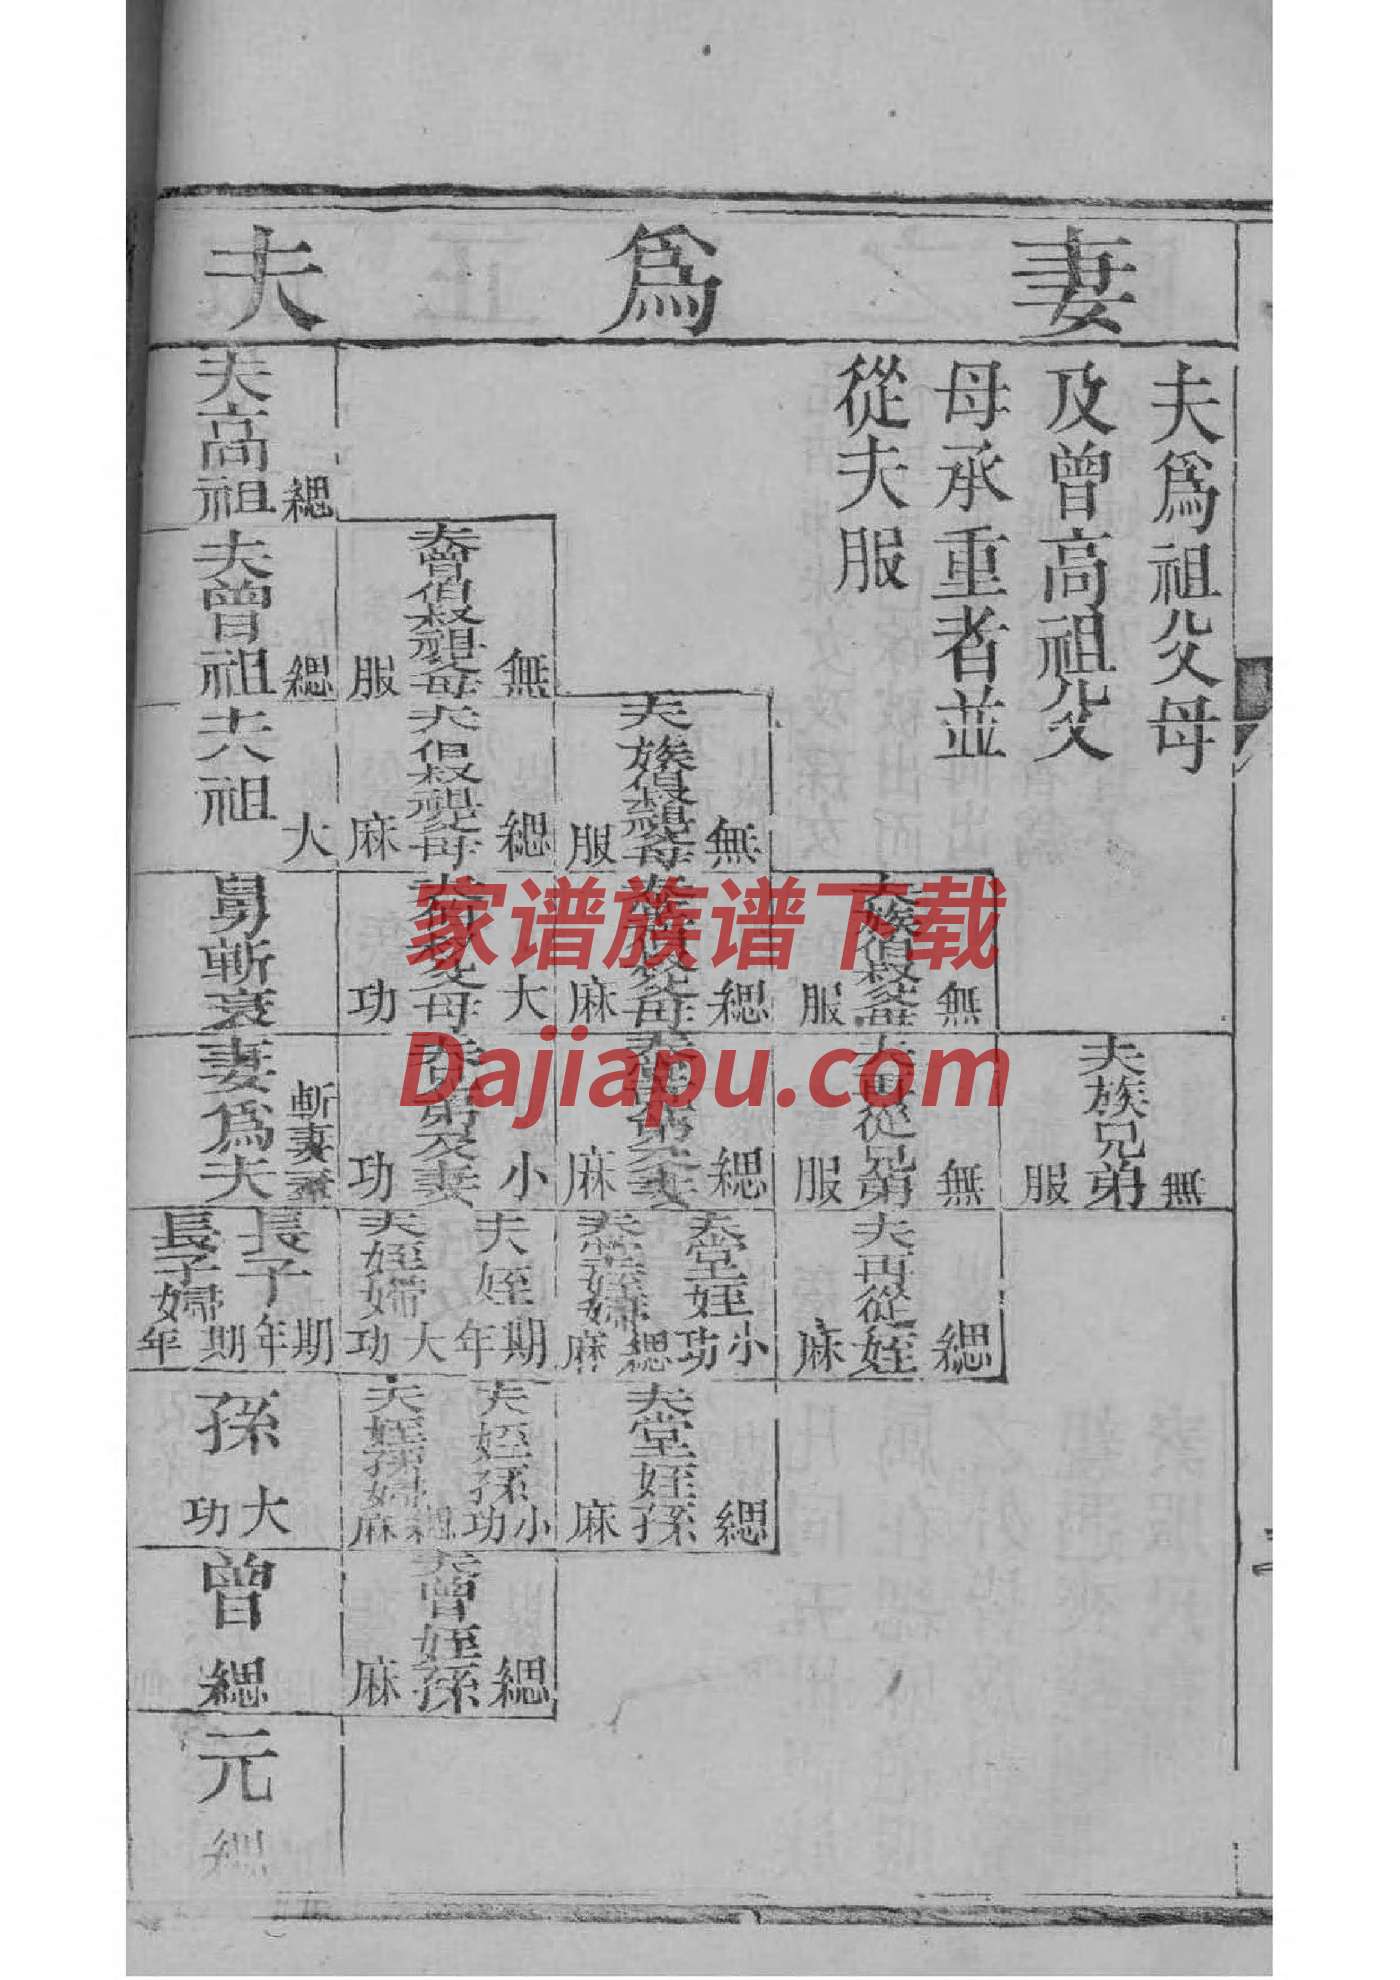 妻爲夫
夫爲祖父母
及曾高祖父
母承重者並
從夫服
夫族兄弟
無服
夫族伯叔父母
無服
夫再從兄弟
無服
夫再從姪
緦麻
夫族伯叔祖父母
無服
緦麻
緦麻
夫堂姪
小功
緦麻
夫堂姪孫
緦麻
夫曾伯叔祖父母
無服
夫伯叔祖父母
緦麻
夫伯叔父母
大功
夫兄弟及妻
小功
夫姪
期年
夫姪婦
大功
夫姪孫
小功
夫姪孫婦
緦麻
夫曾姪孫
緦麻
夫高祖
緦
夫曾祖
緦
夫祖
大
舅斬衰
妻爲夫
斬衰
長子
期年
長子婦
期年
孫
大功
曾
緦
元
緦
家谱族谱下载
Dajiapu.com